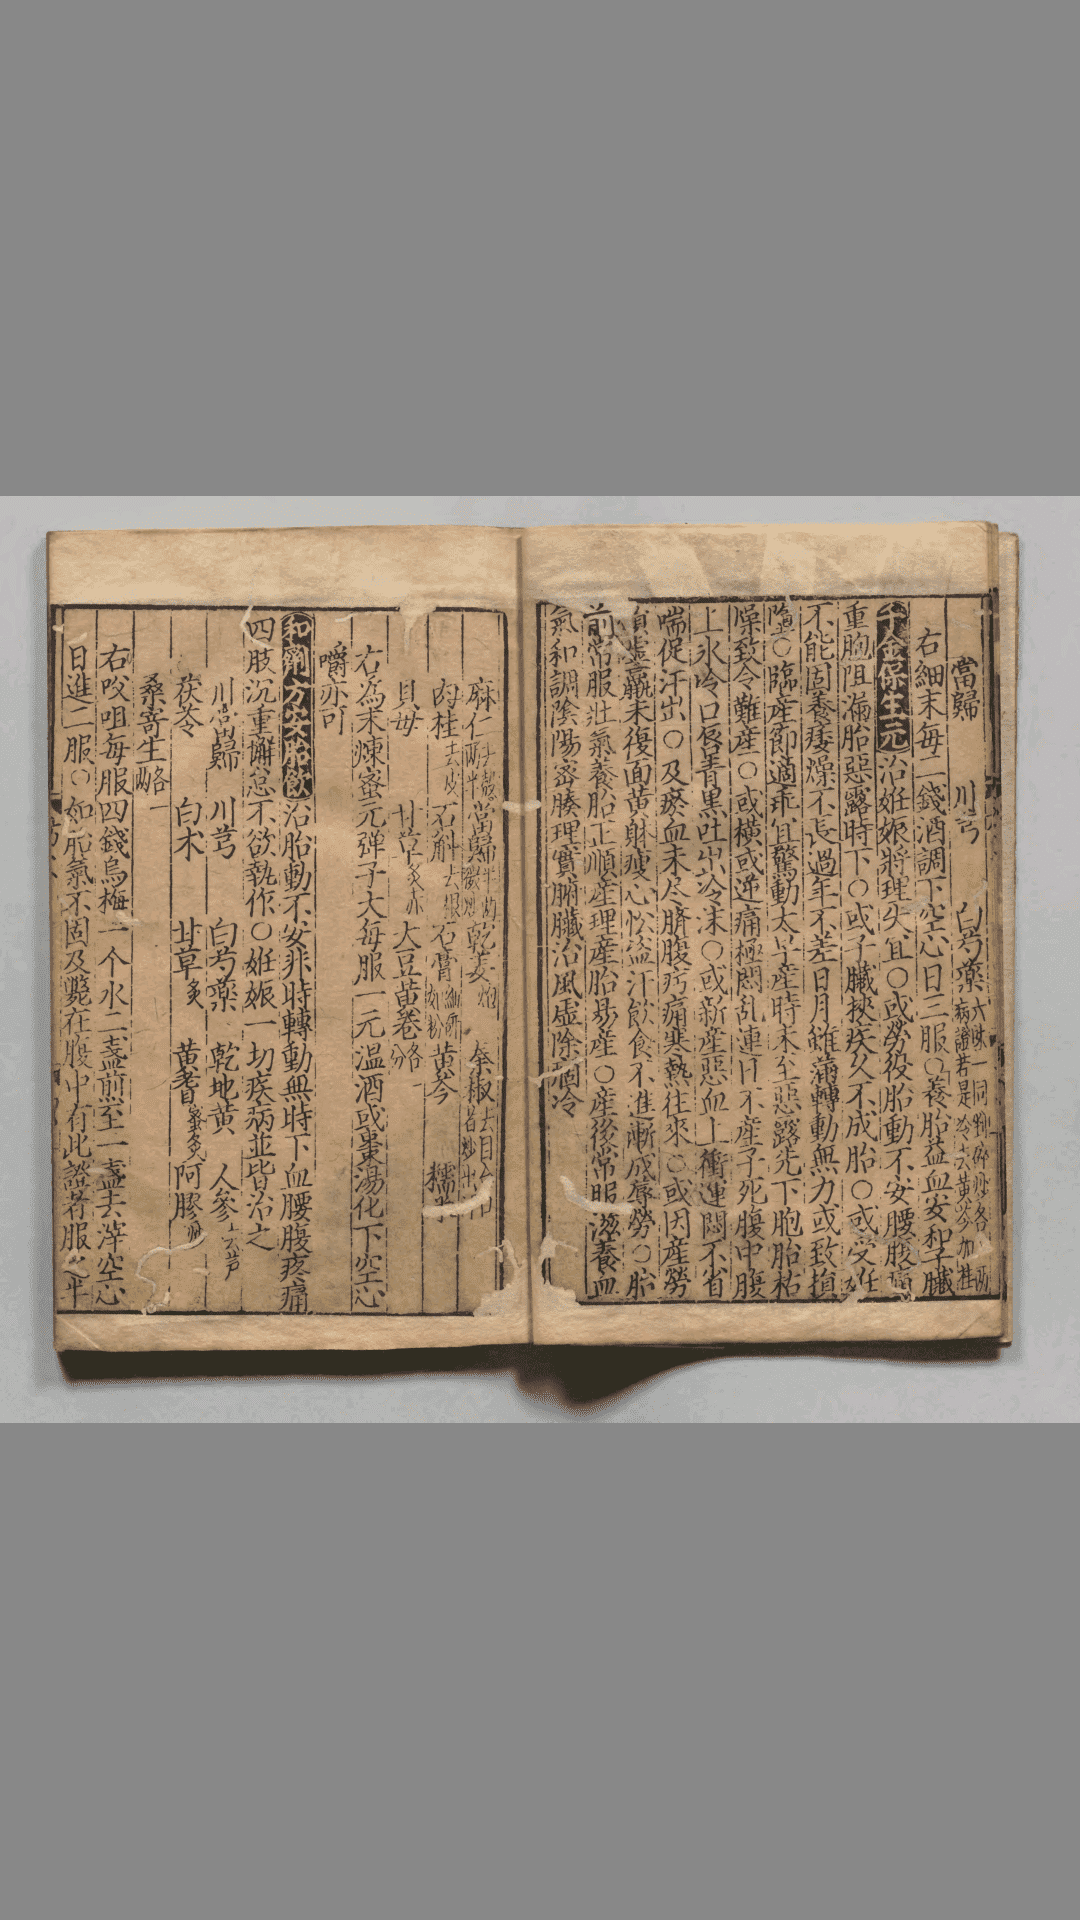 當歸 川芎 白芍藥
右細末每二錢酒調下空心日三服○養胎益血安和子臟
千金保生元治姙娠將理失宜○或勞役胎動不安腰腹痛
重胞阻漏胎惡露時下○或子臟挾疾久不成胎○或受姙
不能固養痿燥不長過年不差日月雖滿轉動無力或致損
墮○臨產節適乖宜驚動太早產時未至惡露先下胞胎枯
燥致令難產○或橫或逆痛極悶乱連日不產子死腹中腹
上氷冷口唇青黑吐出冷沫○或新產惡血上衝運悶不省
喘促汗出○及瘀血未尽臍腹㽲痛寒熱往來○或因產勞
損虛羸未復面黃躰瘦心忪盜汗飲食不進漸成蓐勞○胎
前常服壯氣養胎正順產理產胎昜產○產後常服滋養血
氣和調陰陽密腠理實腑臟治風虛除痼冷
麻仁 當歸 乾姜炮 秦椒
肉桂去皮 石斛去根 石膏 黃芩 糯米
貝母 甘草炙 大豆黃卷各一分
右為末煉蜜元弹子大每服一元温酒或棗湯化下空心
嚼亦可
和劑方安胎飲治胎動不安非時轉動無時下血腰腹疼痛
四肢沉重懈怠不欲執作○姙娠一切疾病並皆治之
川當歸 川芎 白芍藥 乾地黃 人參去芦
茯苓 白朮 甘草炙 黃耆蜜炙 阿膠炒
桑寄生各一兩
右㕮咀每服四錢烏梅一个水二盞煎至一盞去滓空心
日進二服○如胎氣不固及斃在腹中有此證若服之半